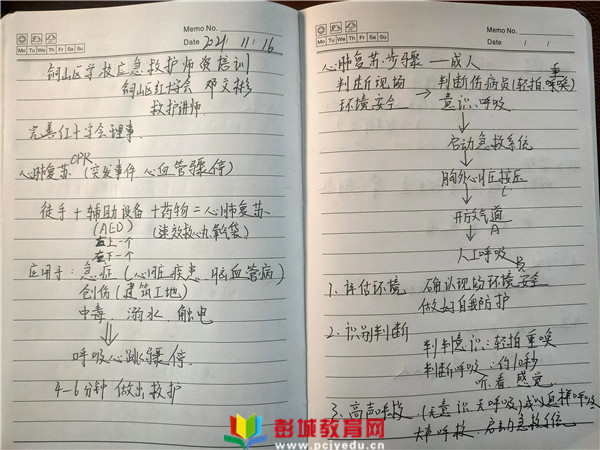 Memo No.
Mo Tu We Th Fr Sa Su
Date 2021 11 16
铜山区学校应急救护师资培训
铜山区红十字会 邓文彬
救护讲师
完善红十字会理事.
CPR
心肺复苏 (突发事件 心血管骤停)
徒手 + 辅助设备 + 药物 = 心肺复苏
(AED) (速效救心丸氧气袋)
右上一个
左下一个
应用于: 急症 (心脏疾患 脑血管病)
创伤 (建筑工地)
中毒. 溺水. 触电
⇓
呼吸心跳骤停.
4-6分钟 做出救护
Memo No.
Mo Tu We Th Fr Sa Su
Date
心肺复苏步骤 — 成人
判断现场 → 判断伤病员(轻拍重唤)
环境安全 意识.呼吸
↓
启动急救系统
↓
胸外心脏按压
↓ C
开放气道
↓ A
人工呼吸
B
1. 评估环境 确认现场环境安全
做好自我防护
2. 识别判断
判断意识:轻拍重唤
判断呼吸:约10秒
听.看.感觉.
3. 高声呼救 (无意识.无呼吸)或叹息样呼吸
大声呼救.启动急救系统
彭城教育网
www.pcjyedu.cn